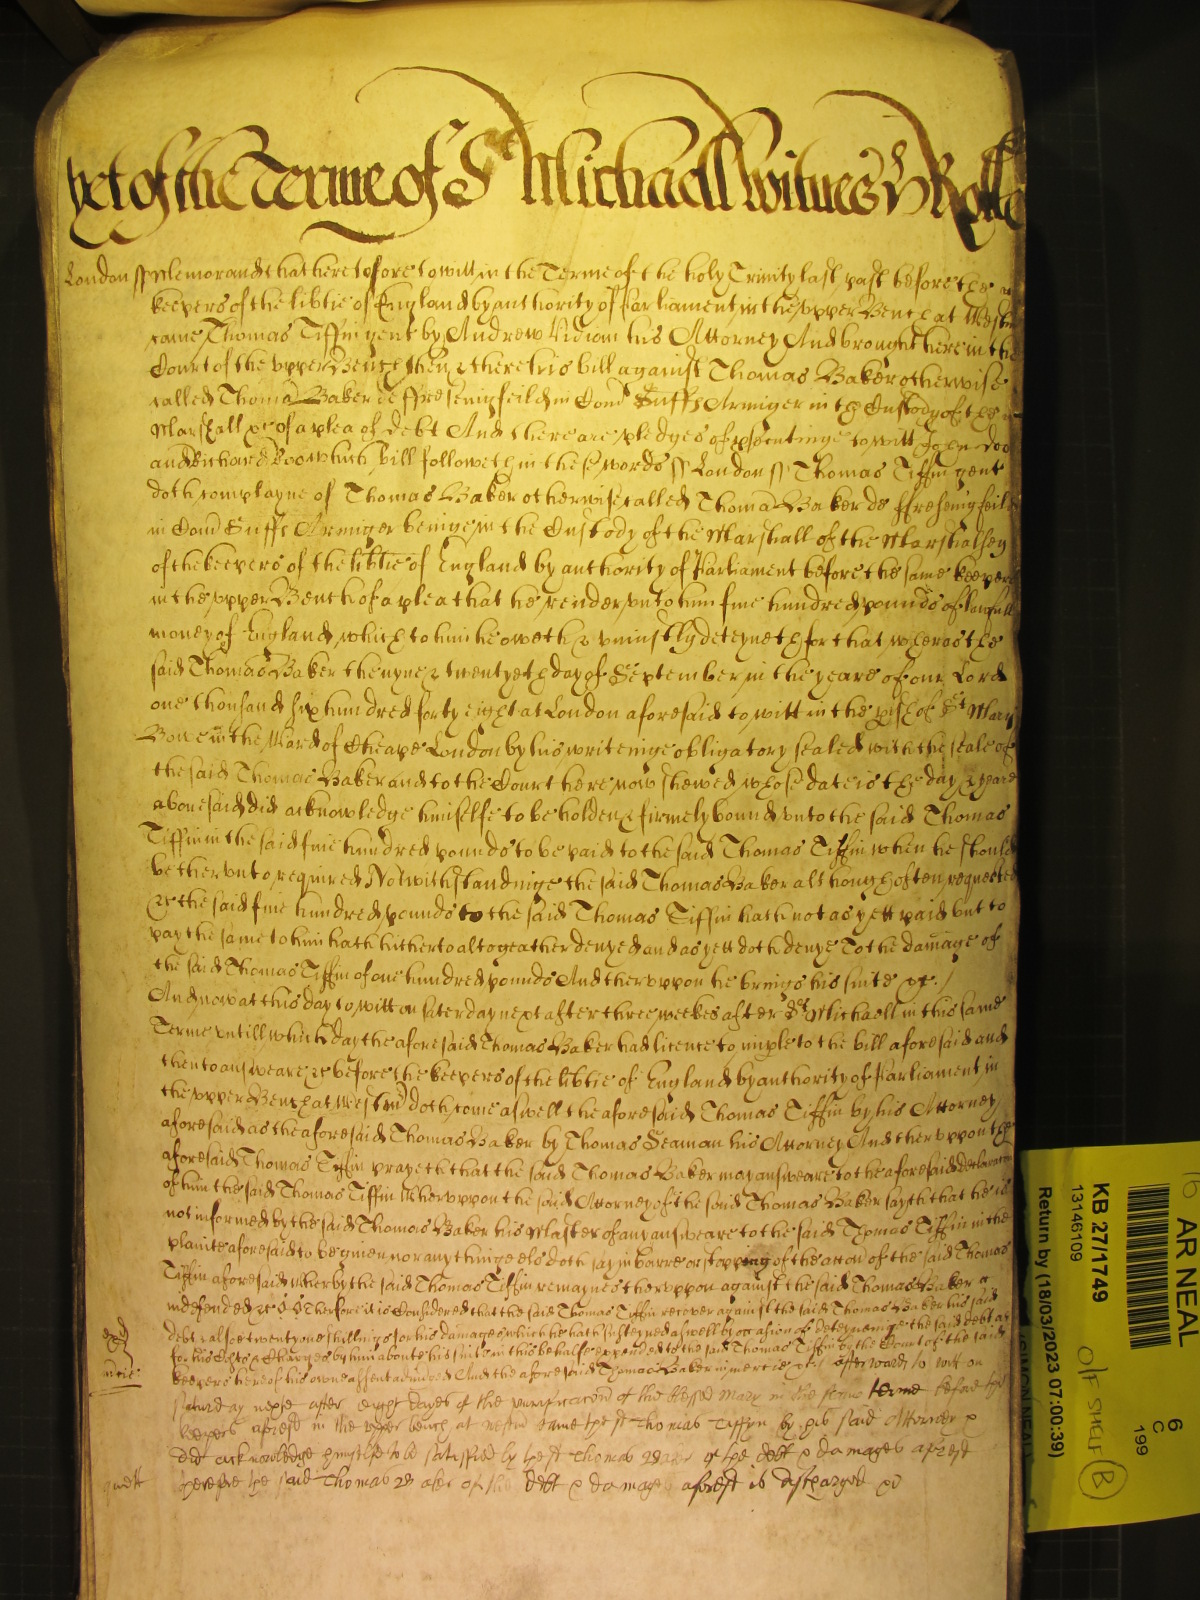 yet of the Terme of St Michaell Witnes H Rolle
London ss Memorand that heretofore to witt in the Terme of the holy Trinity last past before the
keepers of the libtie of England by authority of Parliament in the upper Bench at Westm
came Thomas Tiffin gent by Andrew Vidian his Attorney And brought here in the
Court of the upper Bench then & there his bill against Thomas Baker otherwise
called Thomas Baker de ffresingfeild in Com Suff Armiger in the Custody of the
Marshall &c of a plea of debt And there are pledges of psecutinge to witt John Doo
and Richard Roo which bill followeth in these words ss London ss Thomas Tiffin gent
doth complayne of Thomas Baker otherwise called Thomas Baker de ffresingfeild
in Com Suff Armiger beinge in the Custody of the Marshall of the Marshalsey
of the keepers of the libtie of England by authority of Parliament before the same keepers
in the upper Bench of a plea that he render unto him five hundred pounds of lawfull
money of England which to him he oweth & uniustly deteyneth for that wheras the
said Thomas Baker the nyne & twentyeth day of September in the yeare of our Lord
one thousand six hundred forty eight at London aforesaid to witt in the pish of St Mary
Bow in the Ward of Cheape London by his writeinge obligatory sealed with the seale of
the said Thomas Baker and to the Court here now shewed whose date is the day & yeare
abovesaid did acknowledge himselfe to be holden & firmely bound unto the said Thomas
Tiffin in the said five hundred pounds to be paid to the said Thomas Tiffin when he should
be therunto required Notwithstandinge the said Thomas Baker although often requested
&c the said five hundred pounds to the said Thomas Tiffin hath not as yett paid but to
pay the same to him hath hitherto altogeather denyed and as yett doth denye To the damage of
the said Thomas Tiffin of one hundred pounds And therupon he brings his suite &c
And now at this day to witt on Saterday next after three weekes after St Michaell in this same
Terme untill which day the aforesaid Thomas Baker had licence to imple to the bill aforesaid and
then to answeare &c before the keepers of the libtie of England by authority of Parliament in
the upper Bench at Westm doth come aswell the aforesaid Thomas Tiffin by his Attorney
aforesaid as the aforesaid Thomas Baker by Thomas Seaman his Attorney And theruppon the
aforesaid Thomas Tiffin prayeth that the said Thomas Baker may answeare to the aforesaid declaration
of him the said Thomas Tiffin Wheruppon the said Attorney of the said Thomas Baker sayth that he is
not informed by the said Thomas Baker his Master of any answeare to the said Thomas Tiffin in the
plainte aforesaid to be given nor any thinge els doth say in barre or stopping of the accon of the said Thomas
Tiffin aforesaid wherby the said Thomas Tiffin remaynes theruppon against the said Thomas Baker
undefended &c Therfore it is Considered that the said Thomas Tiffin recover against the said Thomas Baker his said
debt & alsoe twenty one shillings for his damages which he hath susteyned aswell by occasion of deteyneinge the said debt as
for his Costs & Charges by him aboute his suite in this behalfe expended to the said Thomas Tiffin by the Court of the said
keepers here of his owne assent adiudged And the aforesaid Thomas Baker in mercie &c afterwards to witt on
mcie
Saturday next after eight dayes of the purificacon of the blessed mary in the same terme before the
keepers aforesd in the upper bench at westm came the sd Thomas Tiffin by his said Attorney &
did acknowledge himselfe to be satisfied by the sd Thomas Baker of the debt & damages aforesd
therefore the said Thomas Baker of the debt & damages aforesd is discharged &c
AR NEAL
6
C
199
KB 27/1749
13146109
Return by (18/03/2023 07:00:39)
O/F SMUR B